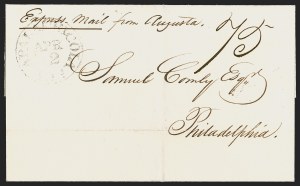 Express Mail from Augusta.
75
Samuel Comly Esqr
Philadelphia.